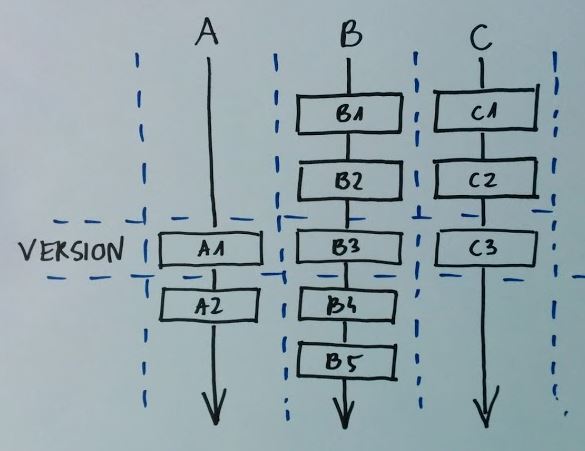 A B C
B1 C1
B2 C2
VERSION A1 B3 C3
A2 B4
B5